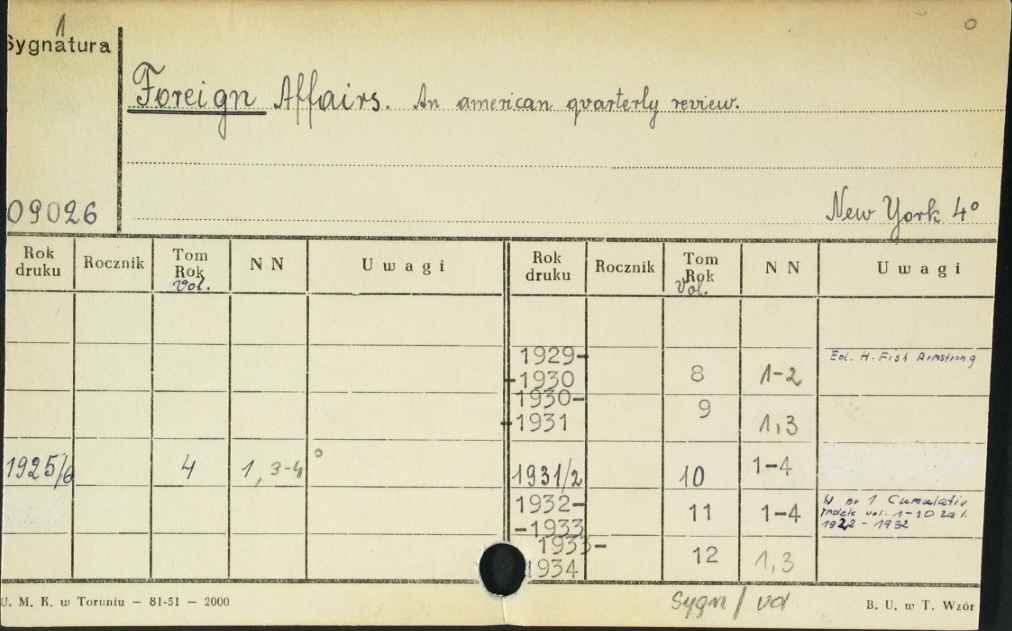 1
Sygnatura
Foreign Affairs. An american quarterly review.
09026
New York 4°
Rok druku Rocznik Tom Rok Vol. N N Uwagi
1925/6 4 1, 3-4 °
Rok druku Rocznik Tom Rok Vol. N N Uwagi
1929- Ed. H. Fish Armstrong
-1930 8 1-2
1930- 9
-1931 1,3
1931/2 10 1-4
1932- 11 1-4 W nr 1 Cumulativ
-1933 indeks vol. 1-10 za l.
1922-1932
1933- 12 1,3
1934
Sygn / vol
U. M. K. w Toruniu — 81-51 — 2000
B. U. w T. Wzór